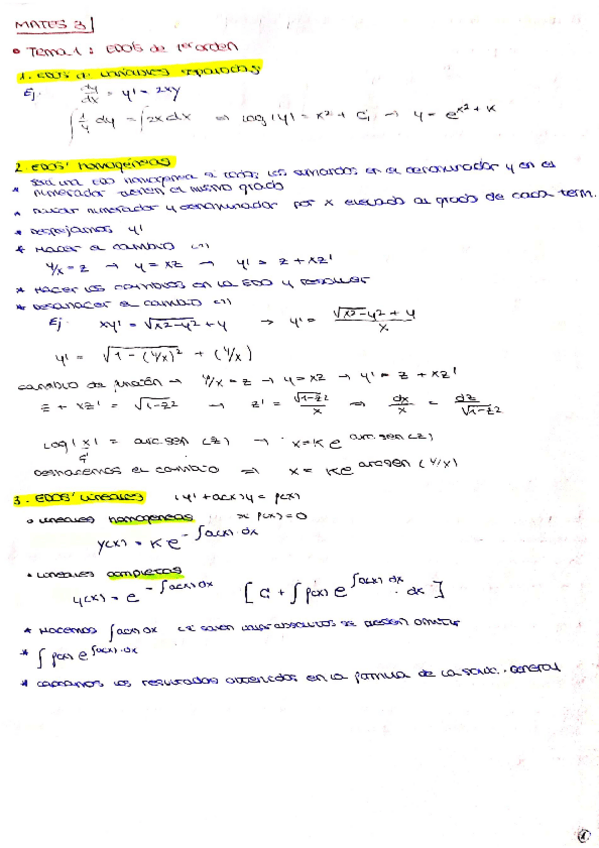 MATES 3
• Tema 1: EDOS de 1er orden
1. EDOS de variables separadas.
Ej. dy/dx = y' = 2xy
∫ 1/y dy = ∫ 2x dx ⇒ log |y| = x² + C, → y = e^(x² + K)
2 EDOS' homogéneas
* será una EDO homogénea si todos los sumandos en el denominador y en el
numerador tienen el mismo grado
* numerador y denominador por x elevado al grado de cada term.
* Despejamos y'
* Hacer el cambio (1)
y/x = z → y = xz → y' = z + xz'
* Hacer los cambios en la EDO y resolver
* Deshacer el cambio (1)
Ej. xy' = √(x²-y²) + y → y' = (√(x²-y²) + y)/x
y' = √(1 - (y/x)²) + (y/x)
cambio de función → y/x = z → y = xz → y' = z + xz'
z + xz' = √(1-z²) → z' = √(1-z²)/x ⇒ dx/x = dz/√(1-z²)
log |x| = arc.sen (z) → x = K e^(arc.sen(z))
deshacemos el cambio ⇒ x = K e^(arcsen(y/x))
3. EDOS' lineales (y' + a(x)y = p(x)
• lineales homogéneas si p(x) = 0
y(x) = K e^(-∫a(x) dx)
• lineales completas
y(x) = e^(-∫a(x) dx) [C + ∫p(x) e^(∫a(x) dx) · dx]
* Hacemos ∫a(x) dx (si salen valor absolutos se pueden omitir
* ∫p(x) e^(∫a(x)·dx)
* cambiamos los resultados obtenidos en la fórmula de la soluc. general
1